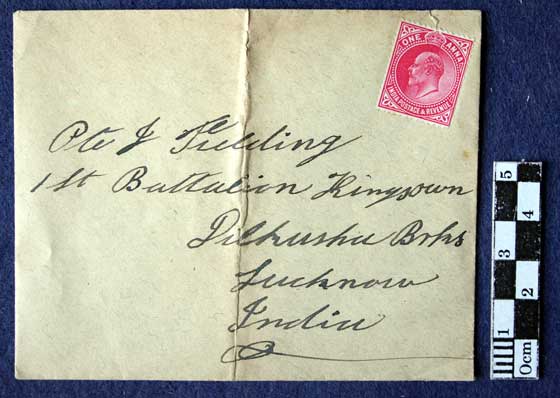 ONE ANNA
INDIA POSTAGE & REVENUE
Pte J Fielding
1st Battalion Kingsown
Dilkusha Brks
Lucknow
India
5
4
3
2
1
0cm